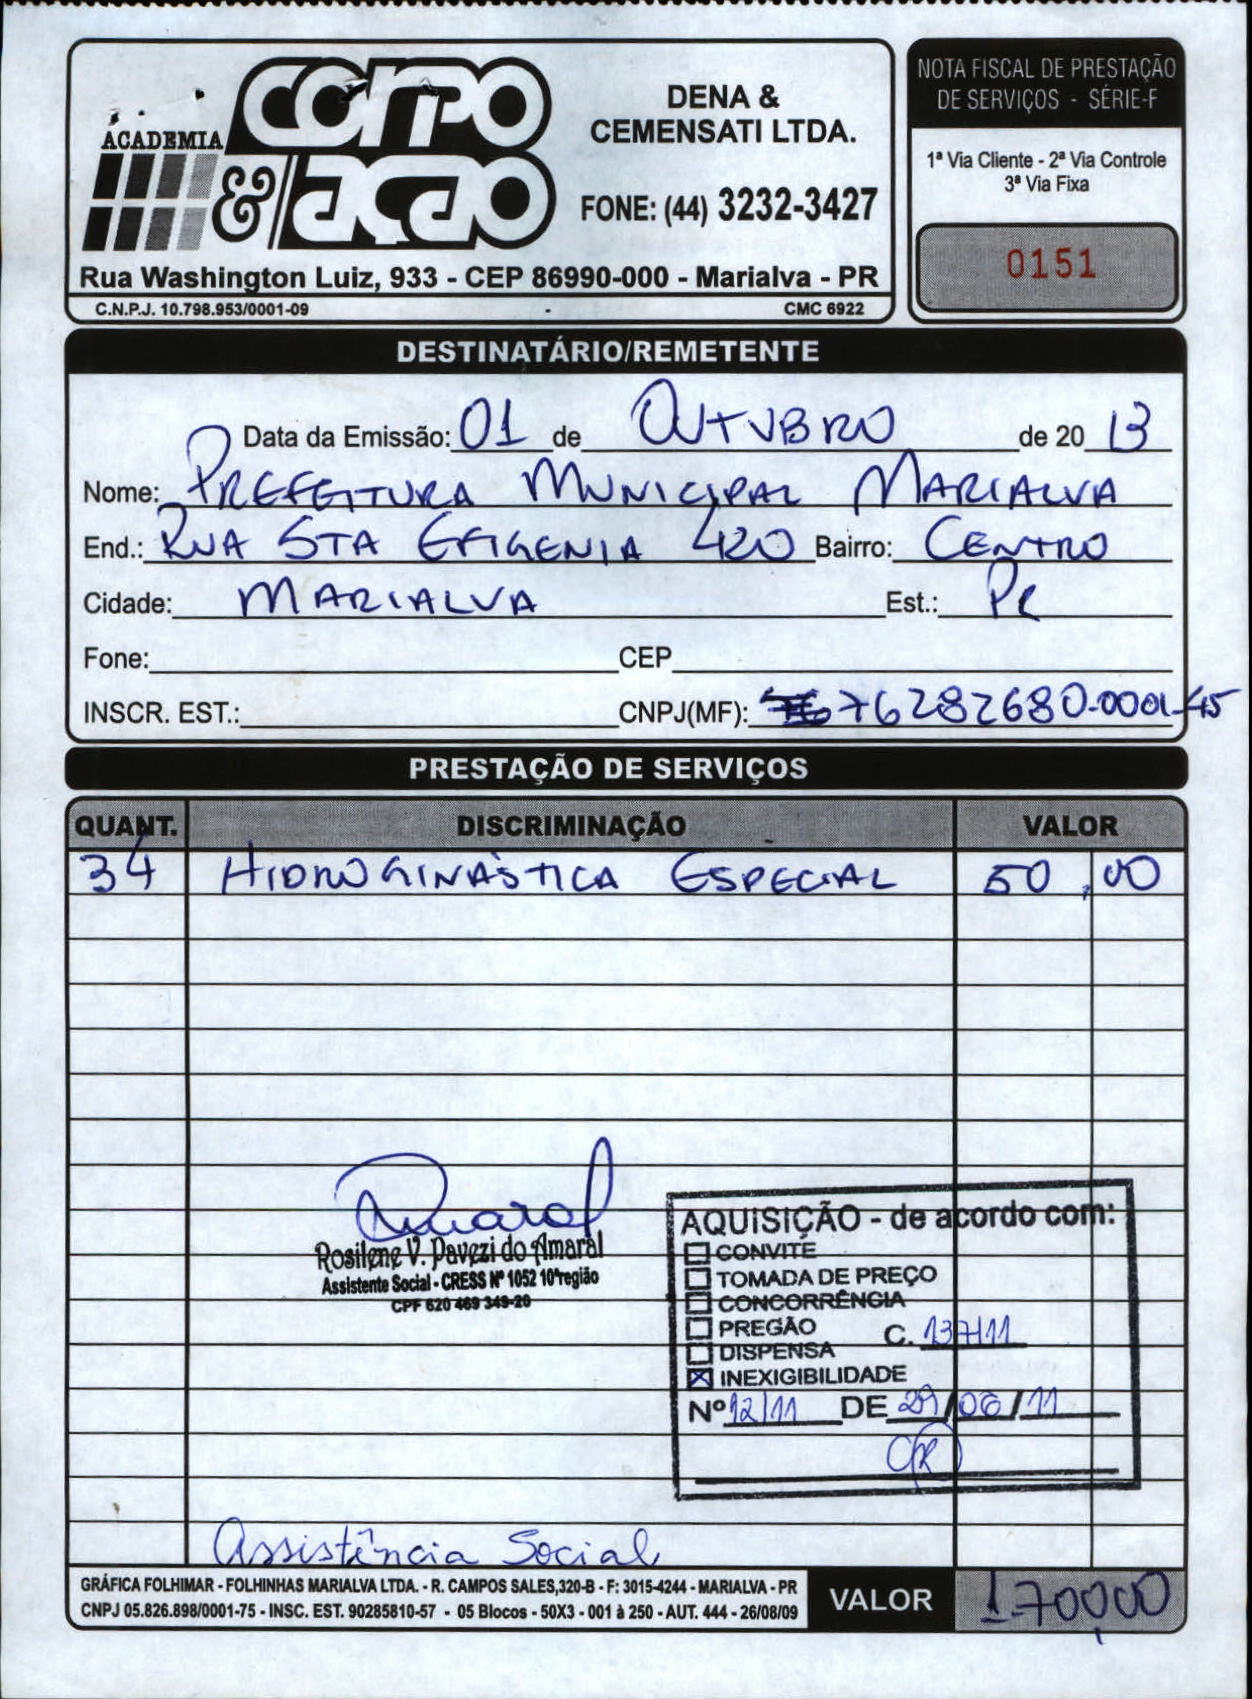 ACADEMIA
CORPO
& AÇÃO
DENA &
CEMENSATI LTDA.
FONE: (44) 3232-3427
Rua Washington Luiz, 933 - CEP 86990-000 - Marialva - PR
C.N.P.J. 10.798.953/0001-09 CMC 6922
NOTA FISCAL DE PRESTAÇÃO
DE SERVIÇOS - SÉRIE-F
1ª Via Cliente - 2ª Via Controle
3ª Via Fixa
0151
DESTINATÁRIO/REMETENTE
Data da Emissão: 01 de OUTUBRO de 20 13
Nome: PREFEITURA MUNICIPAL MARIALVA
End.: RUA STA EFIGENIA 420 Bairro: CENTRO
Cidade: MARIALVA Est.: PR
Fone: CEP
INSCR. EST.: CNPJ(MF): 76282680-0001-45
PRESTAÇÃO DE SERVIÇOS
QUANT. DISCRIMINAÇÃO VALOR
34 HIDROGINÁSTICA ESPECIAL 50,00
Amaral
Rosilene V. Pavezi do Amaral
Assistente Social - CRESS Nº 1052 10ªregião
CPF 620 469 349-20
AQUISIÇÃO - de acordo com:
CONVITE
TOMADA DE PREÇO
CONCORRÊNCIA
PREGÃO C. 137/11
DISPENSA
INEXIGIBILIDADE
Nº 12/11 DE 29/06/11
Assistência Social
GRÁFICA FOLHIMAR - FOLHINHAS MARIALVA LTDA. - R. CAMPOS SALES,320-B - F: 3015-4244 - MARIALVA - PR
CNPJ 05.826.898/0001-75 - INSC. EST. 90285810-57 - 05 Blocos - 50X3 - 001 à 250 - AUT. 444 - 26/08/09
VALOR 1.700,00